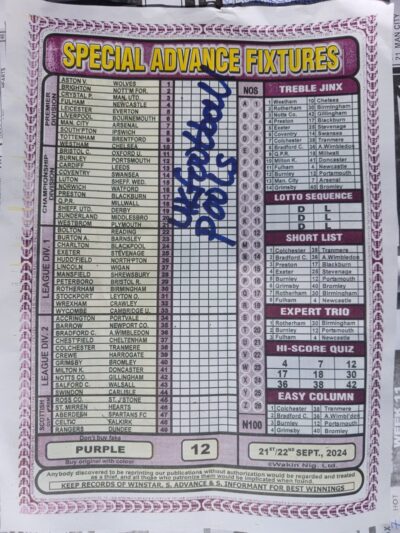 SPECIAL ADVANCE FIXTURES
UK football
pools
PREMIER DIVISION
ASTON V. WOLVES 1
BRIGHTON NOTT'M FOR. 2
CRYSTAL P. MAN. UTD. 3
FULHAM NEWCASTLE 4
LEICESTER EVERTON 5
LIVERPOOL BOURNEMOUTH 6
MAN. CITY ARSENAL 7
SOUTH'PTON IPSWICH 8
TOTTENHAM BRENTFORD 9
WESTHAM CHELSEA 10
CHAMPIONSHIP DIVISION
BRISTOL C. OXFORD U.
BURNLEY PORTSMOUTH
CARDIFF LEEDS
COVENTRY SWANSEA
LUTON SHEFF WED.
NORWICH WATFORD
PRESTON BLACKBURN
Q.P.R. MILLWALL
SHEFF. UTD. DERBY
SUNDERLAND MIDDLESBRO
WESTBROM PLYMOUTH
LEAGUE DIV. 1
BOLTON READING
BURTON A. BARNSLEY
CHARLTON BLACKPOOL
EXETER STEVENAGE
HUDD'FIELD NORTH'PTON
LINCOLN WIGAN
MANSFIELD SHREWSBURY 28
PETERBORO BRISTOL R. 29
ROTHERHAM BIRMINGHAM 30
STOCKPORT LEYTON O. 31
WREXHAM CRAWLEY 32
WYCOMBE CAMBRIDGE U. 33
LEAGUE DIV. 2
ACCRINGTON PORTVALE 34
BARROW NEWPORT CO. 35
BRADFORD C. A.WIMBLEDON 36
CHEST'FIELD CHELTENHAM 37
COLCHESTER TRANMERE 38
CREWE HARROGATE 39
GRIMSBY BROMLEY 40
MILTON K. DONCASTER 41
NOTTS CO. GILLINGHAM 42
SALFORD C. WALSALL 43
SWINDON CARLISLE 44
SCOTTISH
ROSS CO. ST. J'STONE 45
ST MIRREN HEARTS 46
ABERDEEN SPARTANS FC 47
CELTIC FALKIRK 48
RANGERS DUNDEE 49
NOS
N100
TREBLE JINX
Westham 10 Chelsea
Rotherham 30 Birmingham
Notts Co. 42 Gillingham
Preston 17 Blackburn
Exeter 25 Stevenage
Coventry 14 Swansea
Colchester 38 Tranmere
Bradford C. 36 A.Wimbledon
Q.P.R. 18 Millwall
Milton K. 41 Doncaster
Fulham 4 Newcastle
Burnley 12 Portsmouth
Man. City 7 Arsenal
Grimsby 40 Bromley
LOTTO SEQUENCE
D L
D L
D L
SHORT LIST
1 Colchester 38 Tranmere
2 Bradford C. 36 A.Wimbledon
3 Preston 17 Blackburn
4 Exeter 25 Stevenage
5 Milton K. 41 Doncaster
6 Grimsby 40 Bromley
7 Rotherham 30 Birmingham
8 Burnley 12 Portsmouth
9 Fulham 4 Newcastle
EXPERT TRIO
1 Rotherham 30 Birmingham
2 Burnley 12 Portsmouth
3 Fulham 4 Newcastle
HI-SCORE QUIZ
4 7 12
17 18 30
36 38 42
EASY COLUMN
1 Colchester 38 Tranmere
2 Bradford C. 36 A.Wimbledon
3 Burnley 12 Portsmouth
4 Grimsby 40 Bromley
Don't buy fake
PURPLE
Buy original with colour
12
21ST/22ND SEPT., 2024
©Wakin Nig. Ltd.
Anybody discovered to be reprinting our publications without authorization would be regarded and treated
as a thief, and all those who patronize them would be implicated when found.
KEEP RECORDS OF WINSTAR, S. ADVANCE & S. INFORMANT FOR BEST WINNINGS
21 MAN CITY
HOT